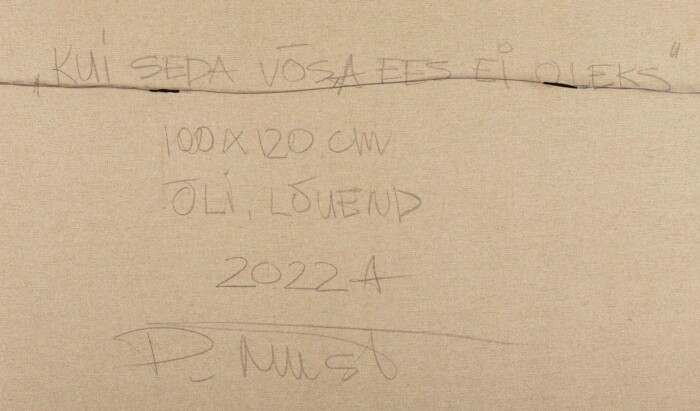 „KUI SEDA VÕSA EES EI OLEKS"
100X120 CM
ÕLI, LÕUEND
2022 A